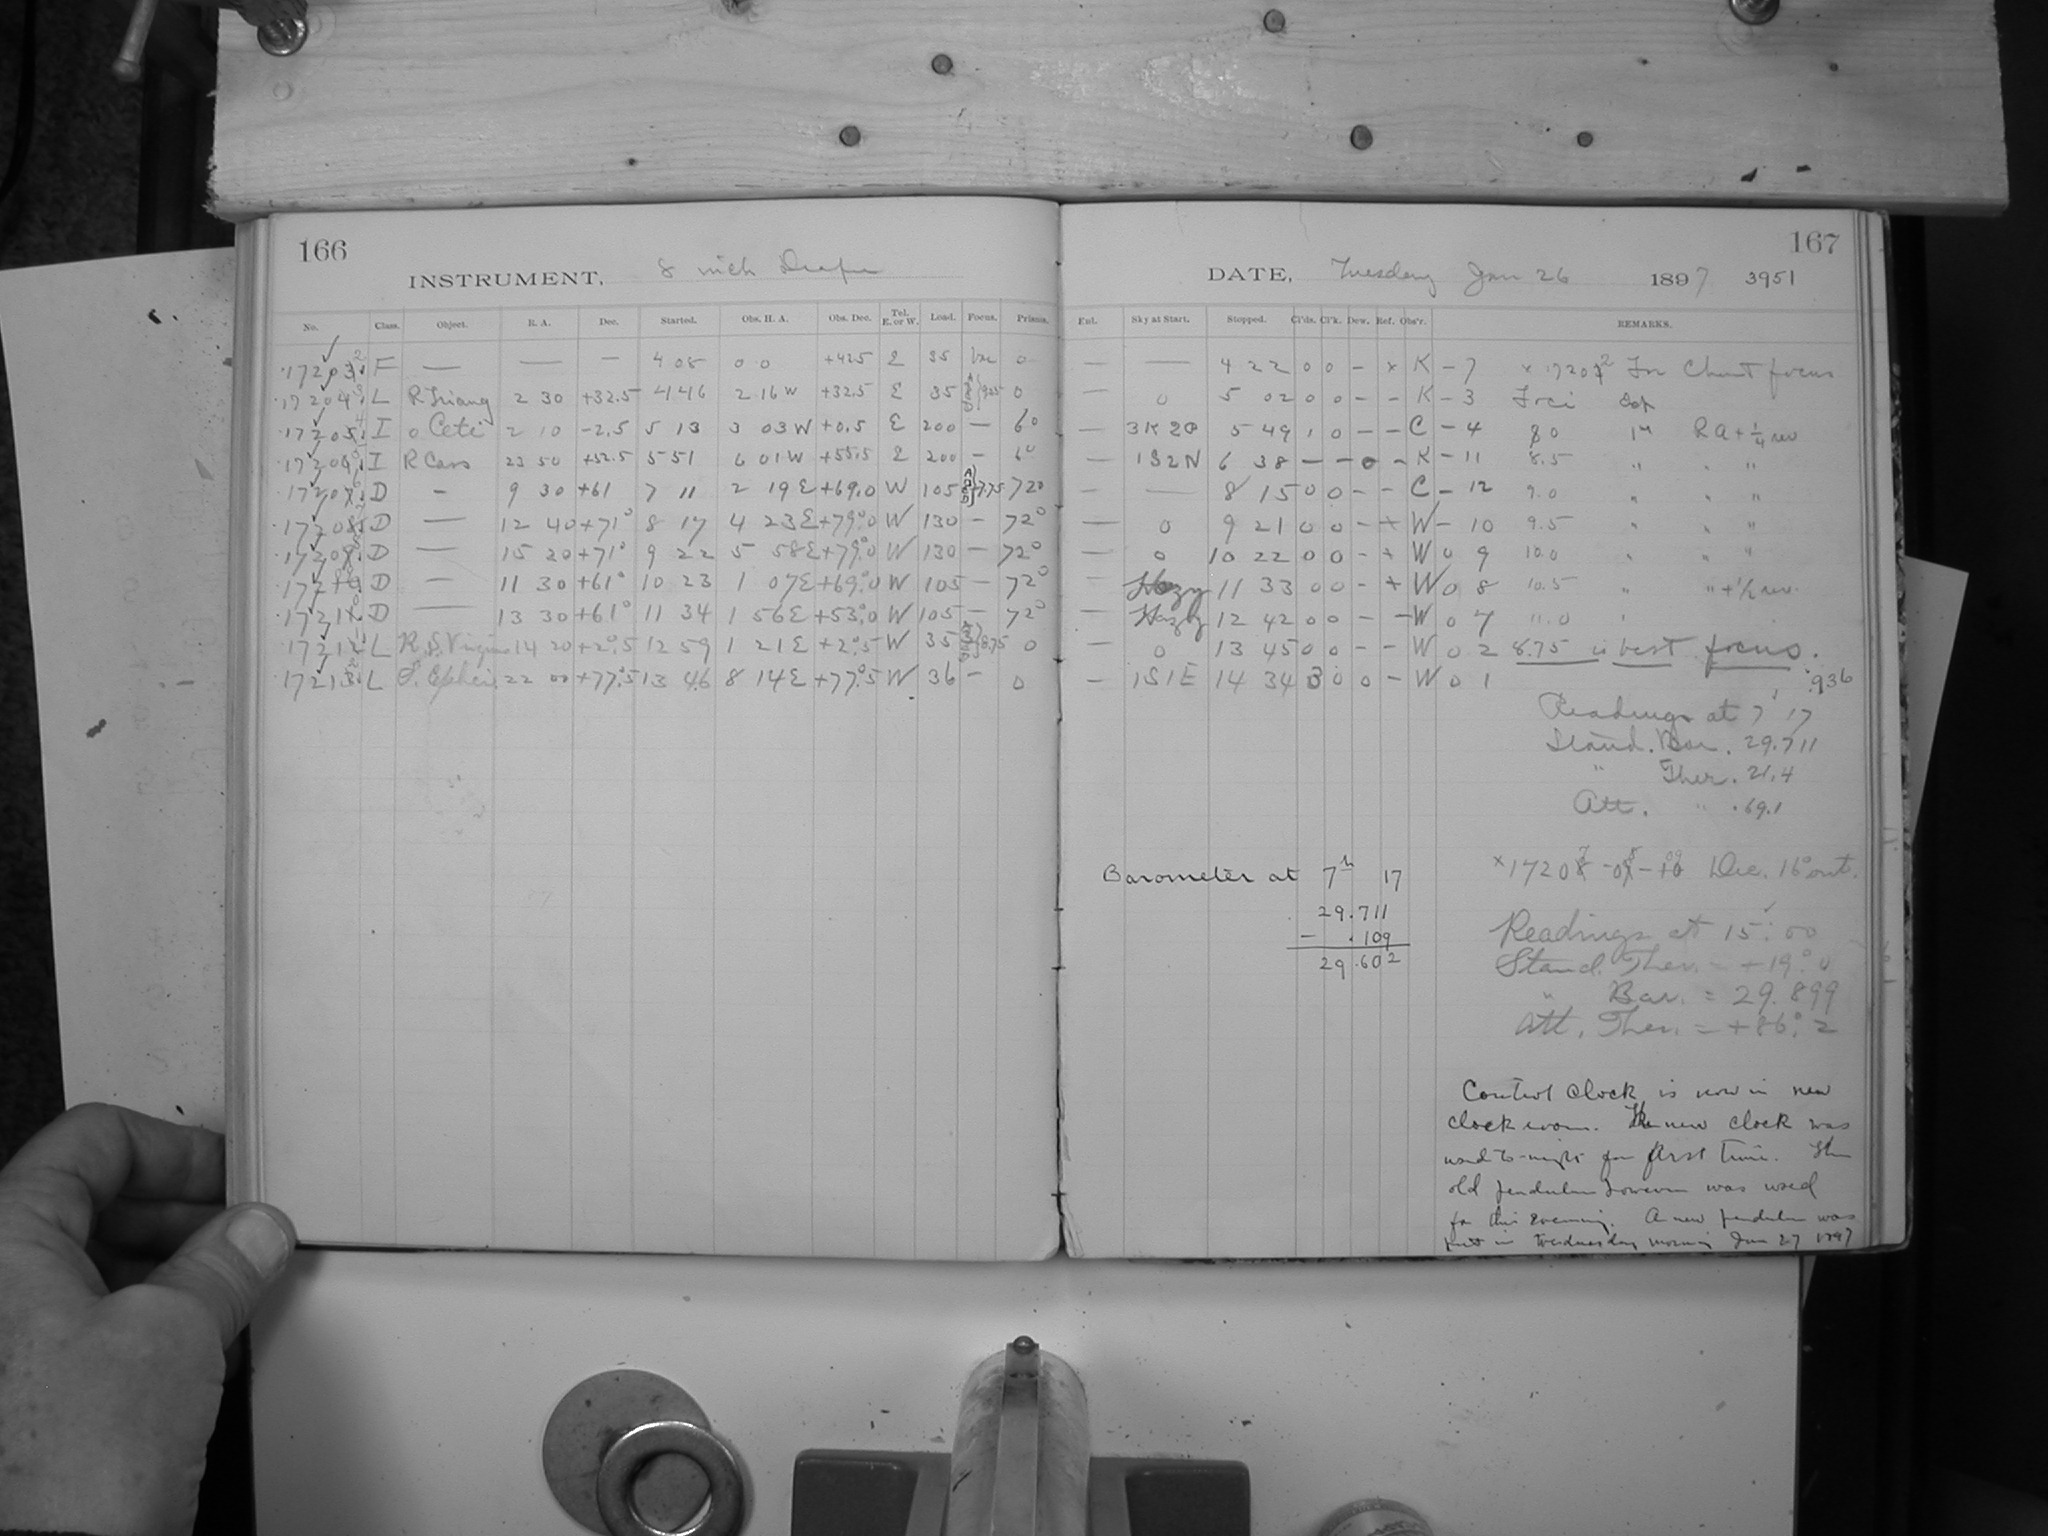 166
INSTRUMENT, 8 inch Draper
No. Class. Object. R. A. Dec. Started. Obs. H. A. Obs. Dec. Tel. E. or W. Load. Focus. Prisms.
F — — — 4 08 0 0 +42.5 E 35 Var 0
L R Triang 2 30 +32.5 4 46 2 16 W +32.5 E 35 9.25 0
I o Ceti 2 10 -2.5 5 13 3 03 W +0.5 E 200 — 60
I R Cass 23 50 +52.5 5 51 6 01 W +55.5 E 200 — 60
D — 9 30 +61 7 11 2 19 E +69.0 W 105 7.75 72°
D — 12 40 +71° 8 17 4 23 E +79°.0 W 130 — 72°
D — 15 20 +71° 9 22 5 58 E +79°.0 W 130 — 72°
D — 11 30 +61° 10 23 1 07 E +69°.0 W 105 — 72°
D — 13 30 +61° 11 34 1 56 E +53°.0 W 105 — 72°
L R.S. Virginis 14 20 +2°.5 12 59 1 21 E +2°.5 W 35 8.75 0
L S. Cephei 22 00 +77°.5 13 46 8 14 E +77°.5 W 36 — 0
167
DATE, Tuesday Jan 26 1897 3951
Ent. Sky at Start. Stopped. Cl'ds. Cl'k. Dew. Ref. Obs'r. REMARKS.
— — 4 22 0 0 — x K — 7 For Chart focus
— 0 5 02 0 0 — — K — 3
— 5 49 1 0 — — C — 4 80 1m RA + 1/4 rev
— 1S2N 6 38 — — 0 — K — 11 8.5 " "
— — 8 15 0 0 — — C — 12 9.0 " "
— 0 9 21 0 0 — + W — 10 9.5 " "
— 0 10 22 0 0 — + W 0 9 10.0 " "
— Hazy 11 33 0 0 — + W 0 8 10.5 " " + 1/2 rev.
— Hazy 12 42 0 0 — — W 0 7 11.0 "
— 0 13 45 0 0 — — W 0 2 8.75 is best focus.
— 1S1E 14 34 3 0 0 — W 0 1 .936
Readings at 7 17
Stand. Bar. 29.711
" Ther. 21.4
Att. " .69.1
Barometer at 7h 17
29.711
- .109
29.602
Dec. 16° out.
Readings at 15:00
Stand. Ther. = +19°.0
" Bar. = 29.899
Att. Ther. = +86°.2
Control clock is now in new
clock room. The new clock was
used to-night for first time. The
old pendulum however was used
for this evening. A new pendulum was
put in Wednesday morning Jan 27 1897